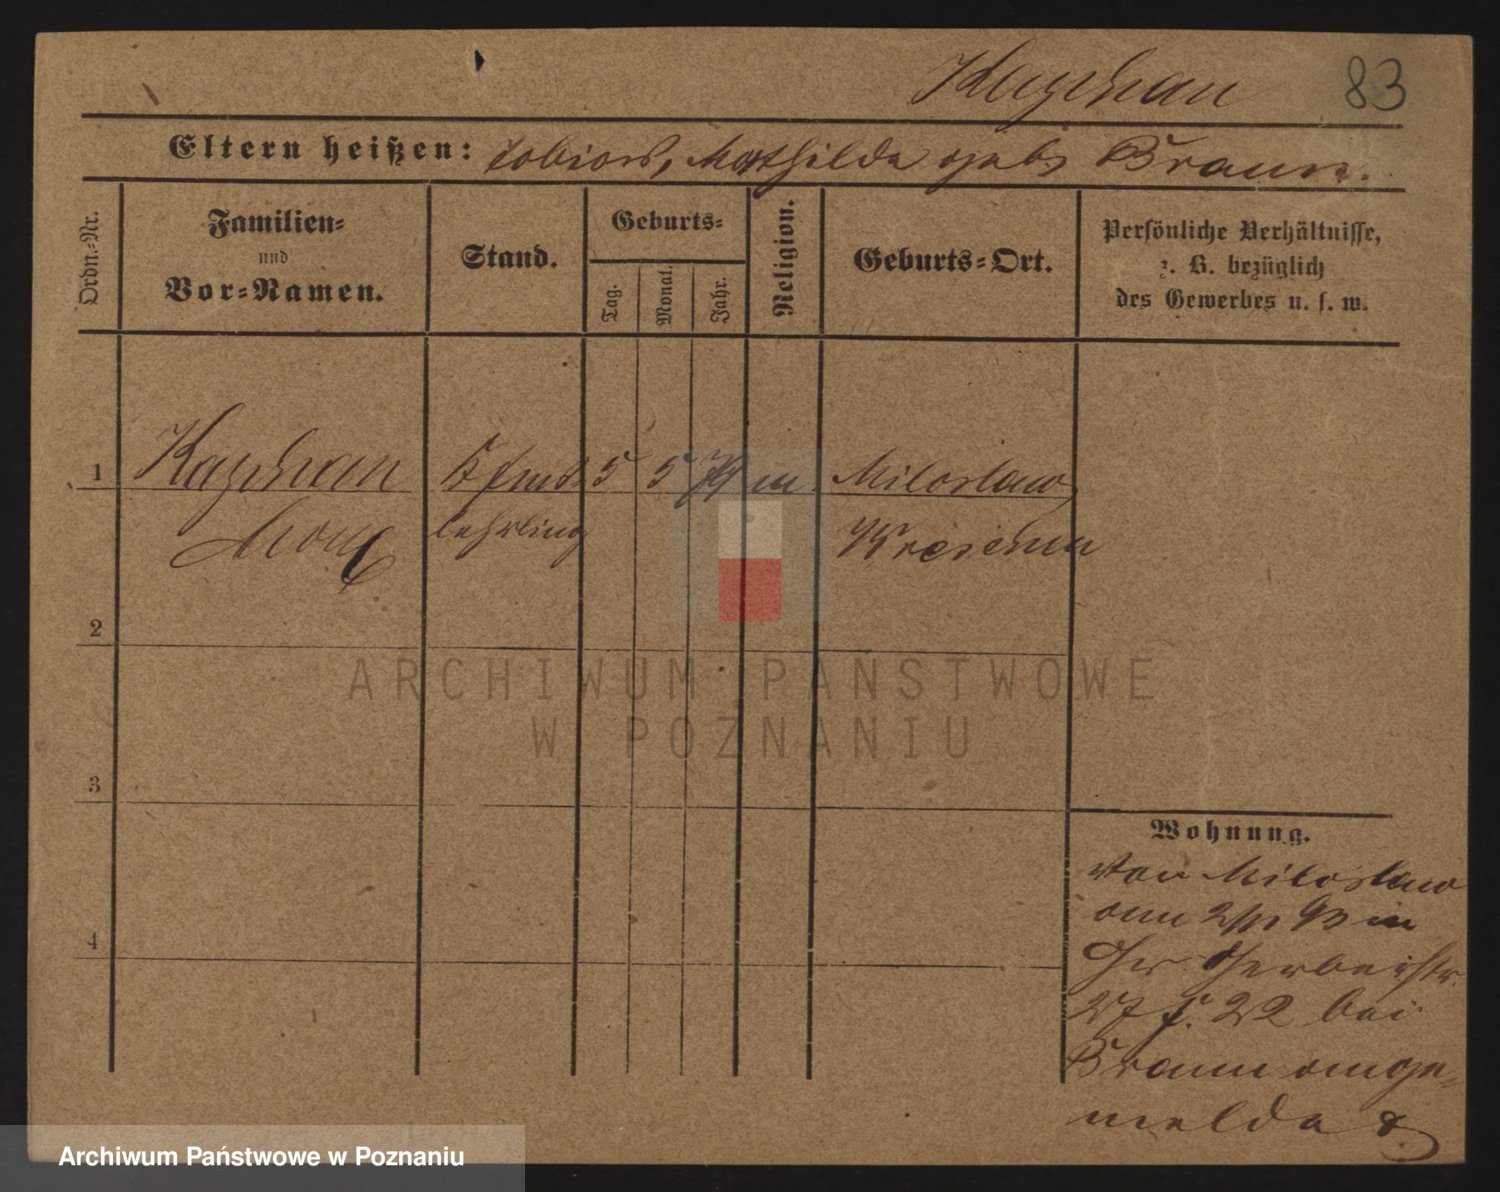 Kayphan 83
Eltern heißen: Tobias, Mathilde geb Braun.
Ordn.-Nr.
Familien-
und
Vor-Namen.
Stand.
Geburts-
Tag.
Monat.
Jahr.
Religion.
Geburts-Ort.
Persönliche Verhältnisse,
z. B. bezüglich
des Gewerbes u. s. w.
1 Kayphan 5 5 79 m Miloslaw
Max lehrling Wreschen
2
3
4
Wohnung.
Von Miloslaw
am 93 in
Gerberstr.
27 f. 22 bei
Braun ange-
meldet
ARCHIWUM PAŃSTWOWE
W POZNANIU
Archiwum Państwowe w Poznaniu